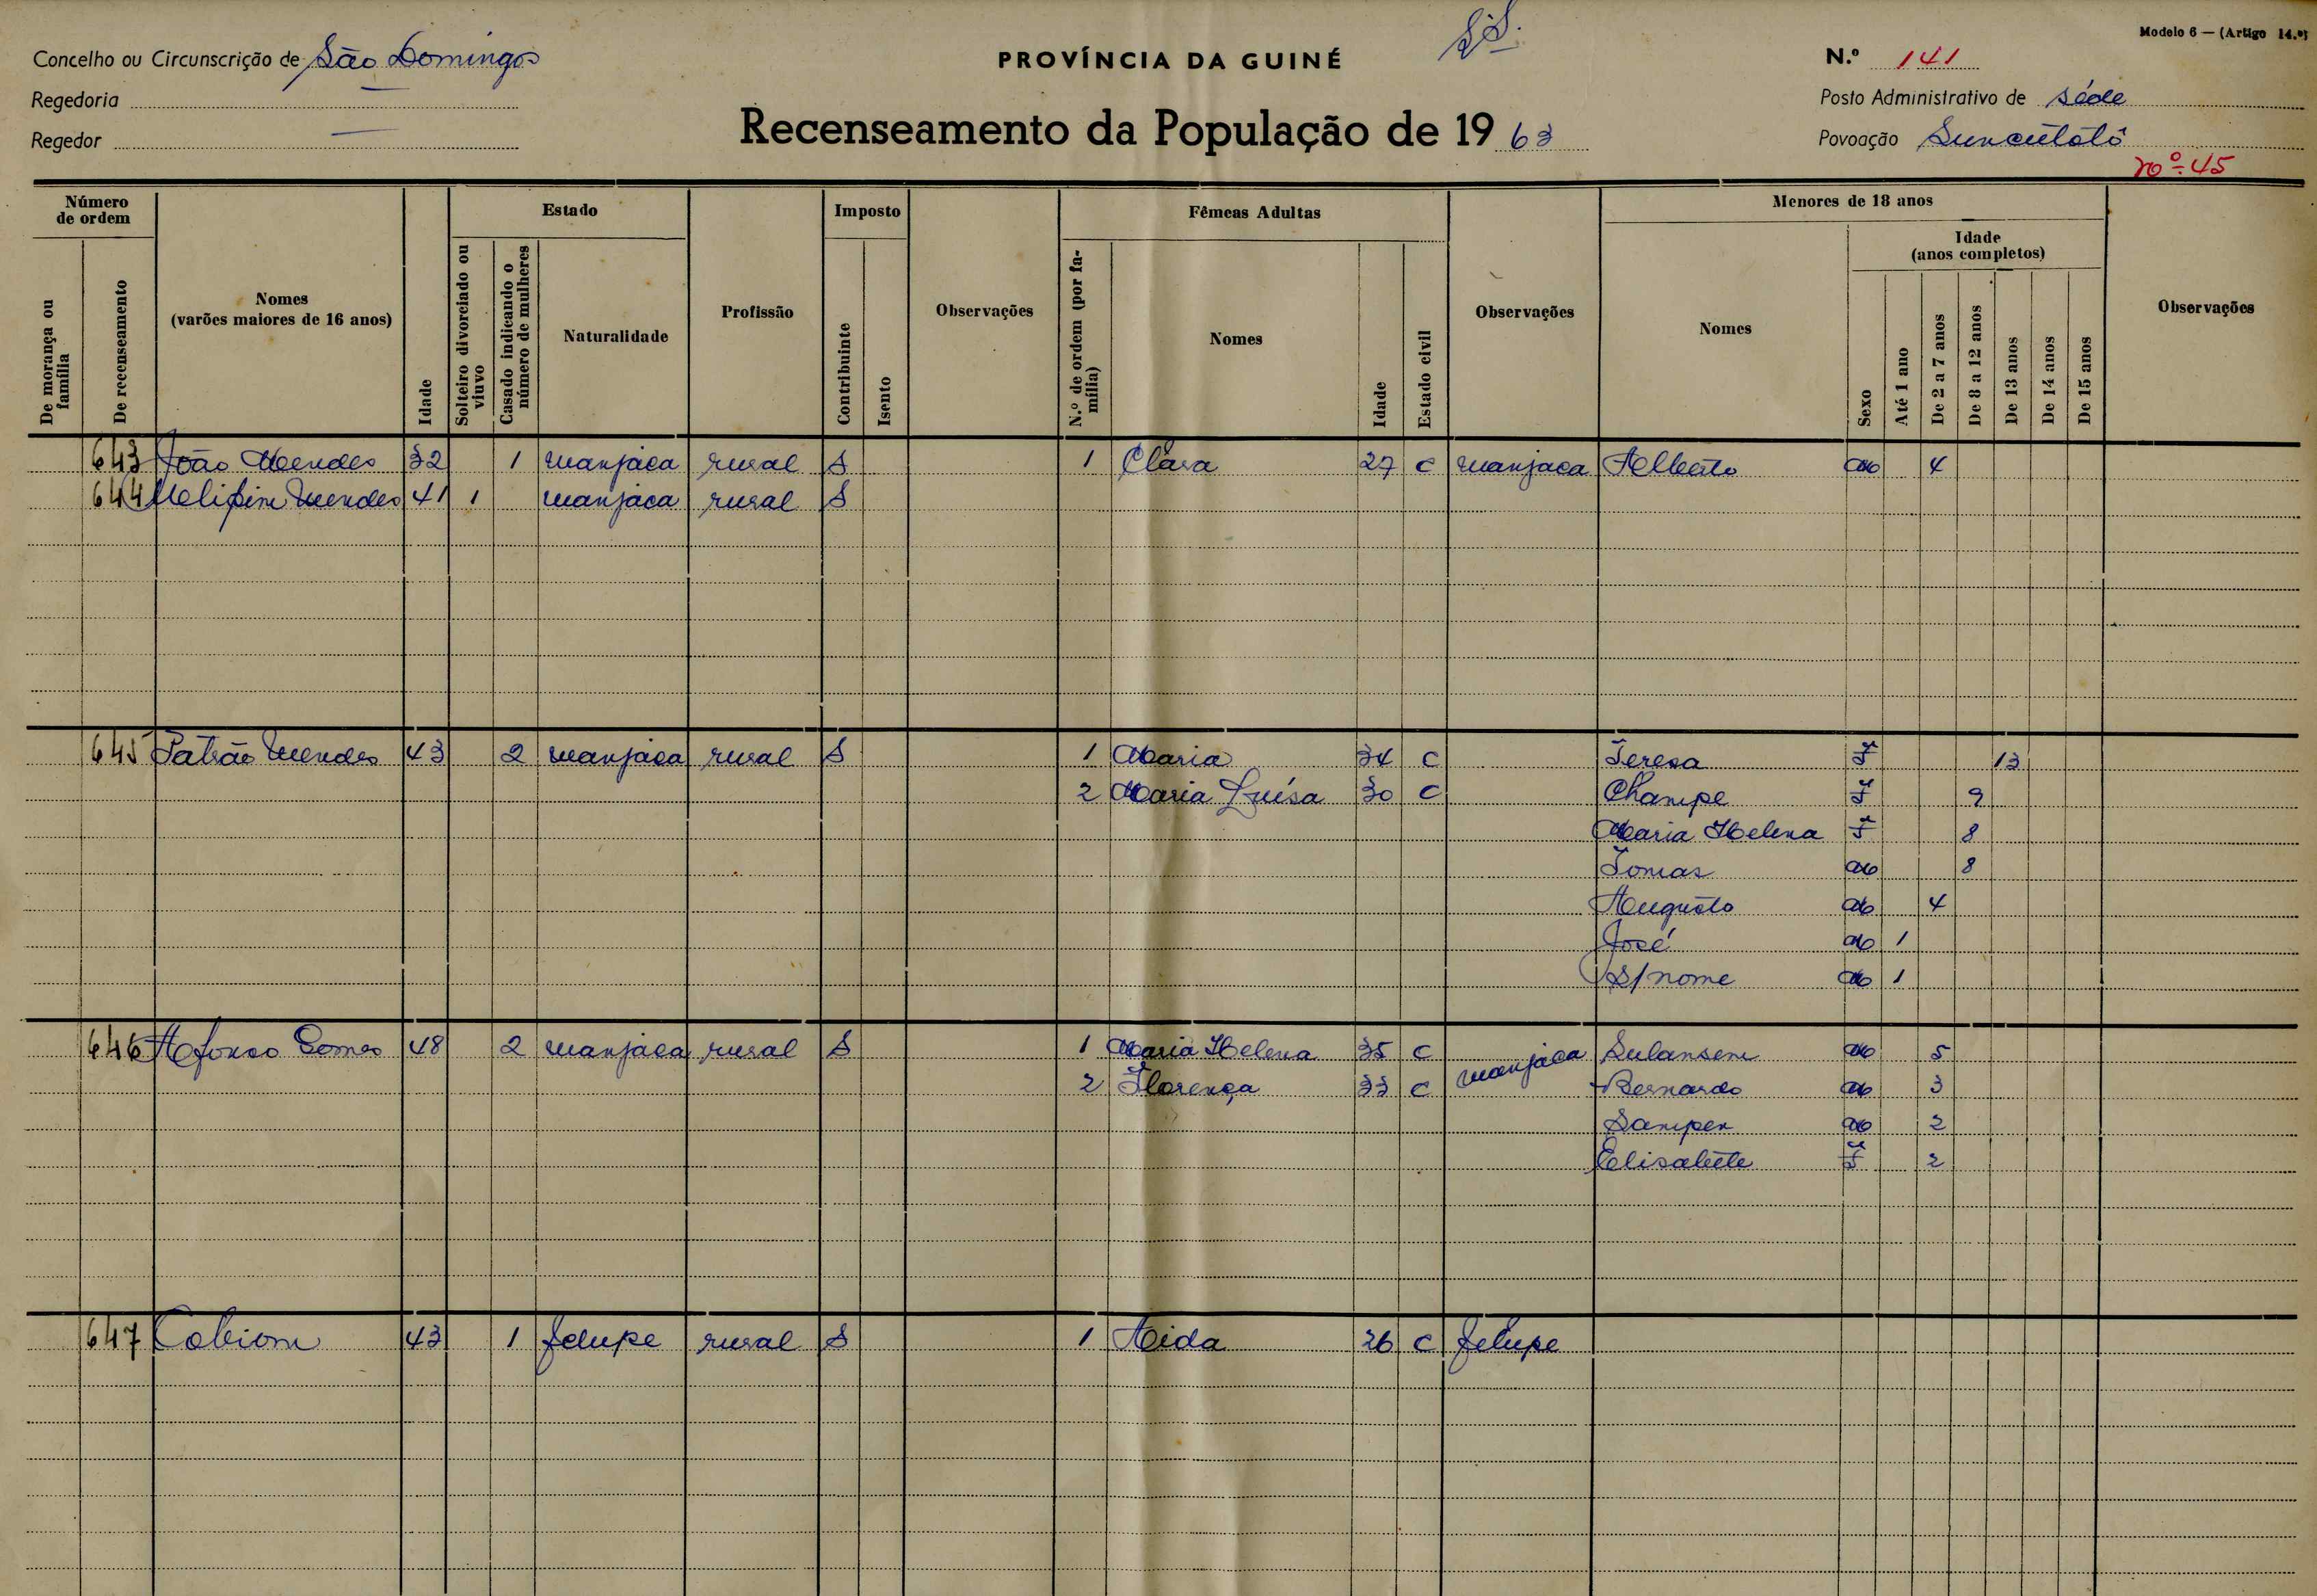 Modelo 6 — (Artigo 14.º)
Concelho ou Circunscrição de São Domingos
PROVÍNCIA DA GUINÉ
N.º 141
Regedoria —
Posto Administrativo de Séde
Regedor —
Recenseamento da População de 1963
Povoação Suncutôtô
nº- 45
Número de ordem
De morança ou família
De recenseamento
Nomes (varões maiores de 16 anos)
Idade
Estado
Solteiro divorciado ou viuvo
Casado indicando o número de mulheres
Naturalidade
Profissão
Imposto
Contribuinte
Isento
Observações
Fêmeas Adultas
N.º de ordem (por família)
Nomes
Idade
Estado civil
Observações
Menores de 18 anos
Nomes
Sexo
Idade (anos completos)
Até 1 ano
De 2 a 7 anos
De 8 a 12 anos
De 13 anos
De 14 anos
De 15 anos
Observações
643 João Mendes 32 1 manjaca rural S 1 Clara 27 C manjaca Alberto M 4
644 Mendes 41 1 manjaca rural S
645 Patrão Mendes 43 2 manjaca rural S 1 Maria 34 C Teresa F 13
2 Maria Luísa 30 C Champe F 9
Maria Helena F 8
Tomas M 8
Augusto M 4
José M 1
S/nome M 1
646 Afonso Gomes 48 2 manjaca rural S 1 Maria Helena 35 C manjaca Sulansem M 5
2 Florença 33 C Bernardo M 3
Sampen M 2
Elisabete F 2
647 Cobiom 43 1 felupe rural S 1 Aida 26 C felupe